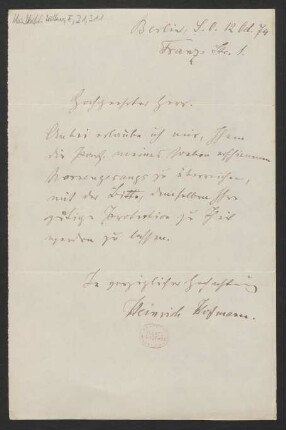 Berlin, S.O. 12 Oct. 74
Franz. Str. 1.
Hochgeehrter Herr.
Anbei erlaube ich mir, Ihnen
die Part. meines soeben erschienenen
Nornengesangs zu überreichen,
mit der Bitte, demselben Ihre
gütige Protection zu Theil
werden zu lassen.
In vorzüglicher Hochachtung
Heinrich Hofmann.